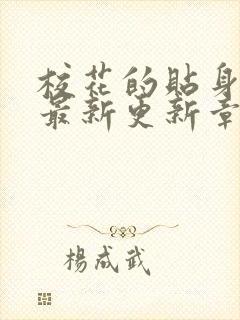 校花的貼身
最新更新章
楊成武